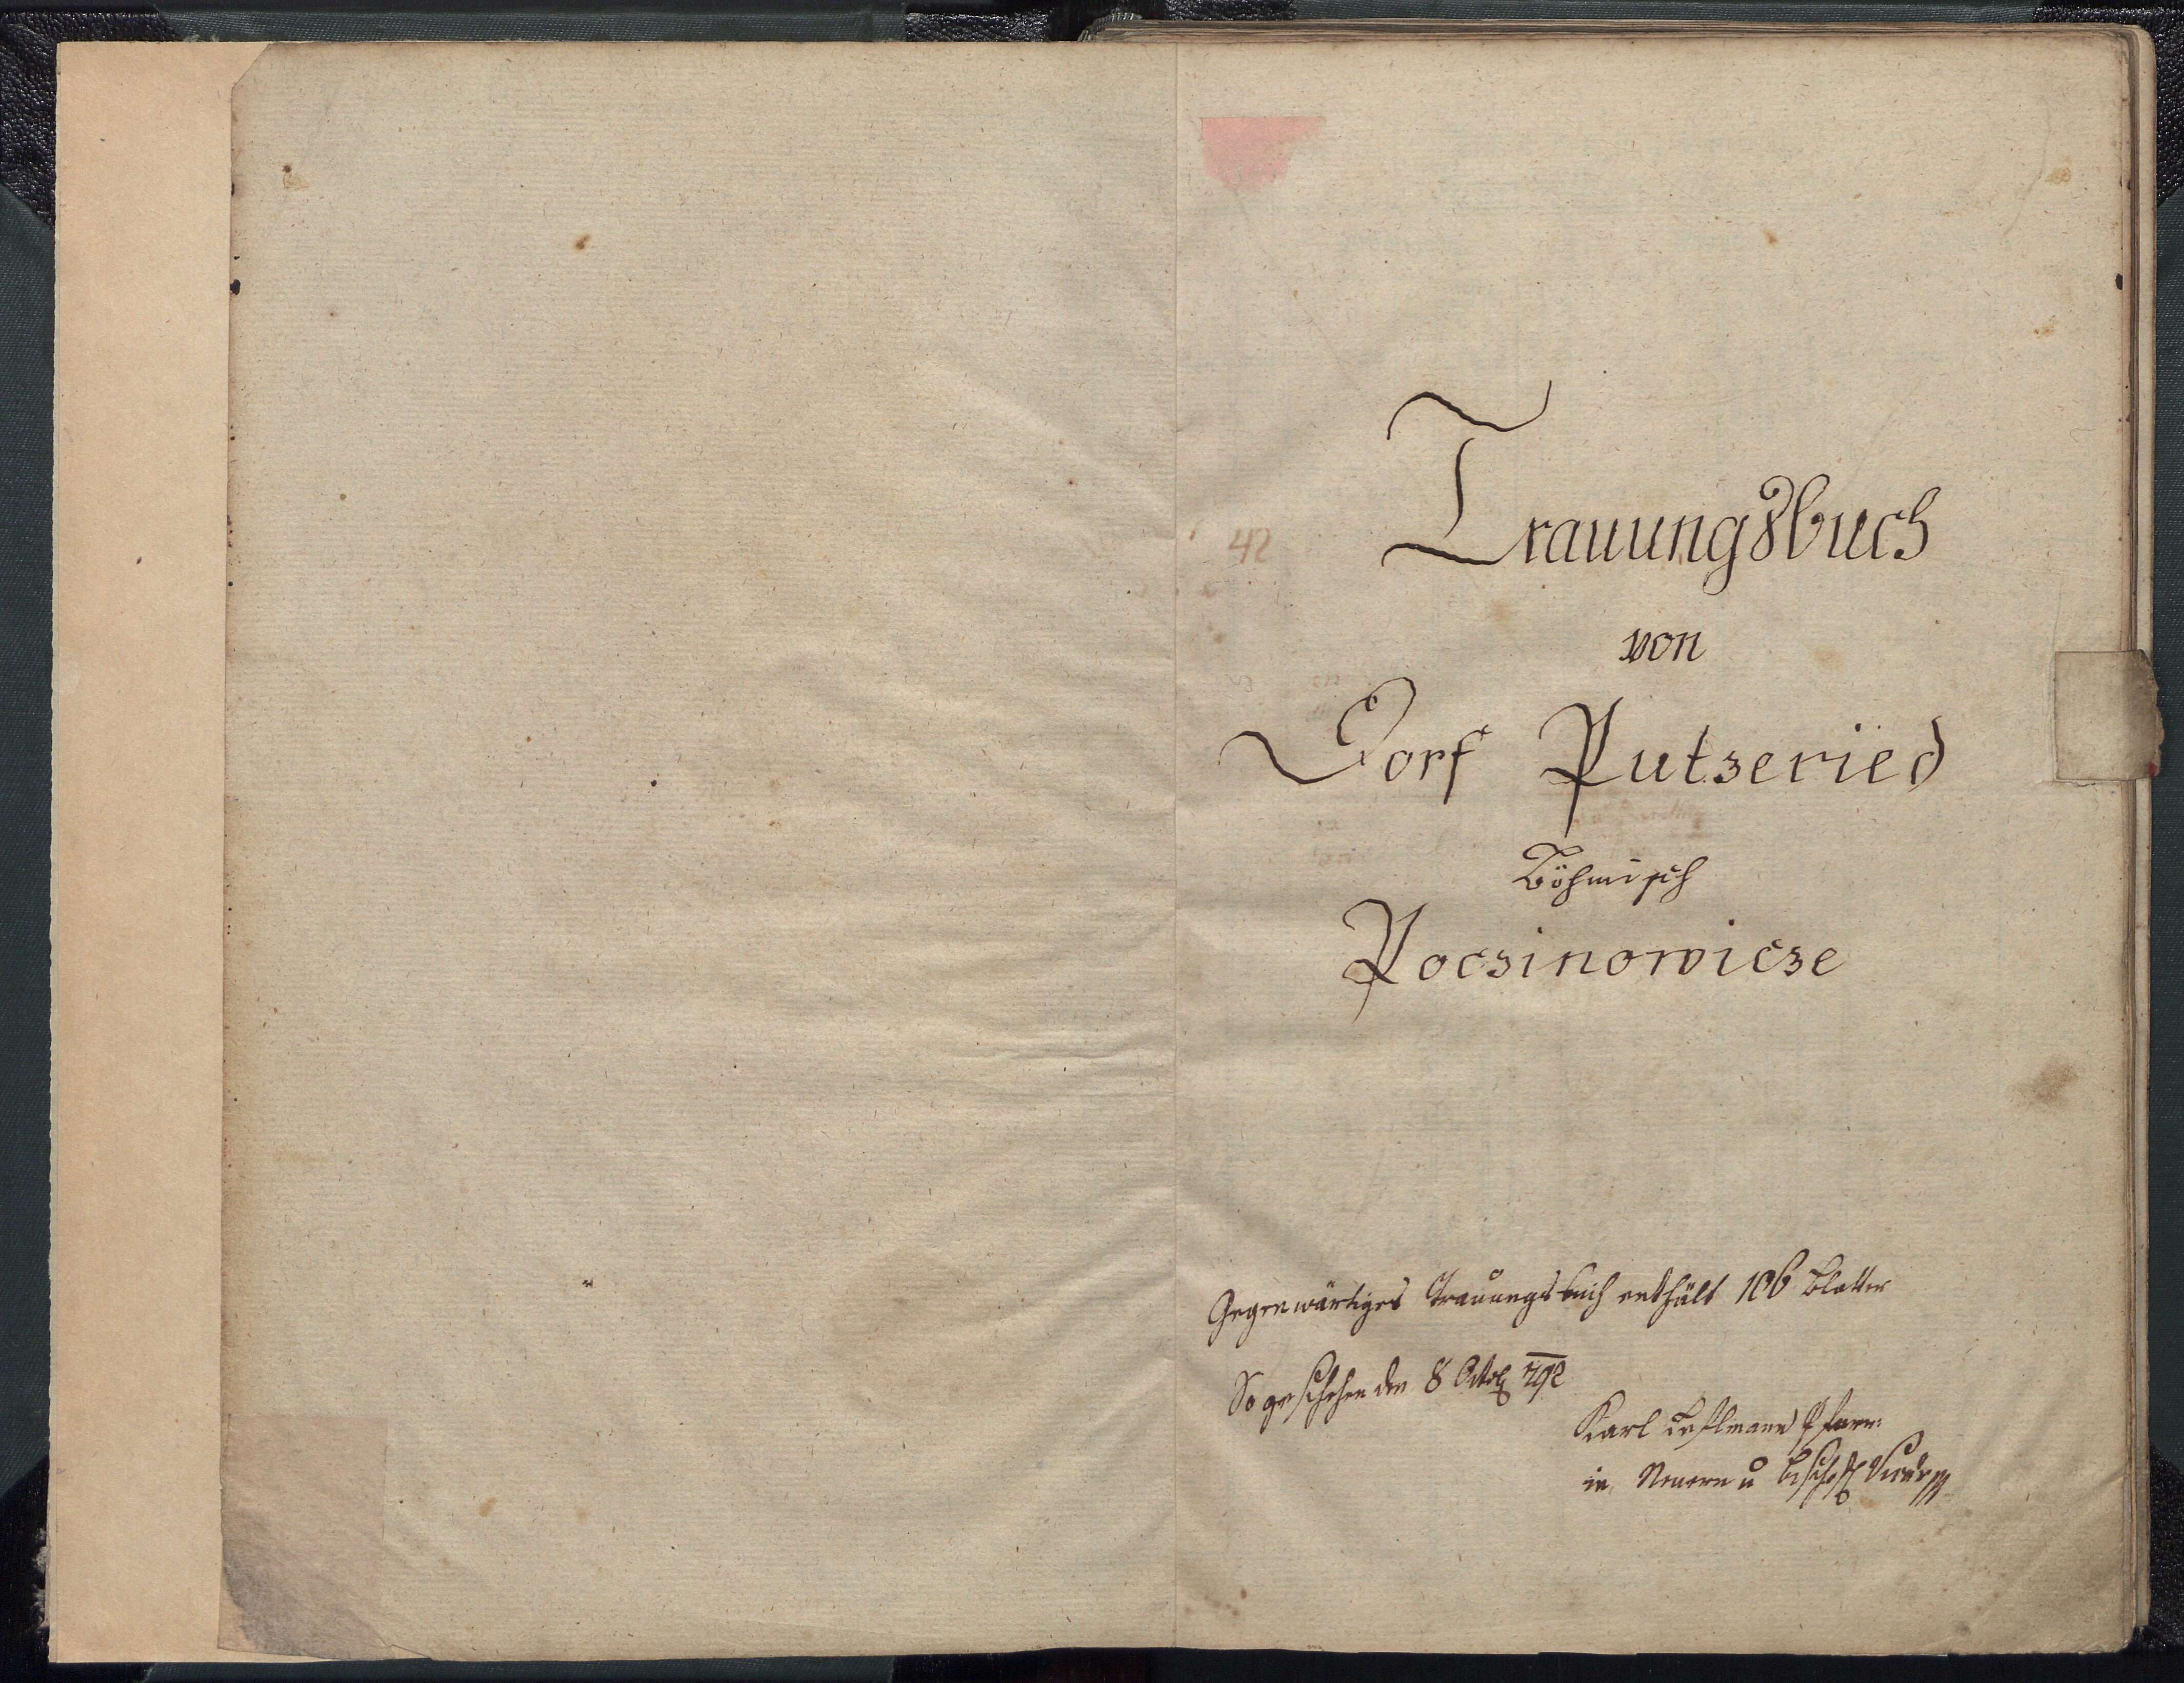 42
Trauungsbuch
von
Dorf Putzeried
Böhmisch
Poczinowicze
Gegenwärtiges Trauungsbuch enthält 106 Blatter
So geschehen den 8 Octob 792
Karl Pfarr:
in Neuern u bischöf Vicär